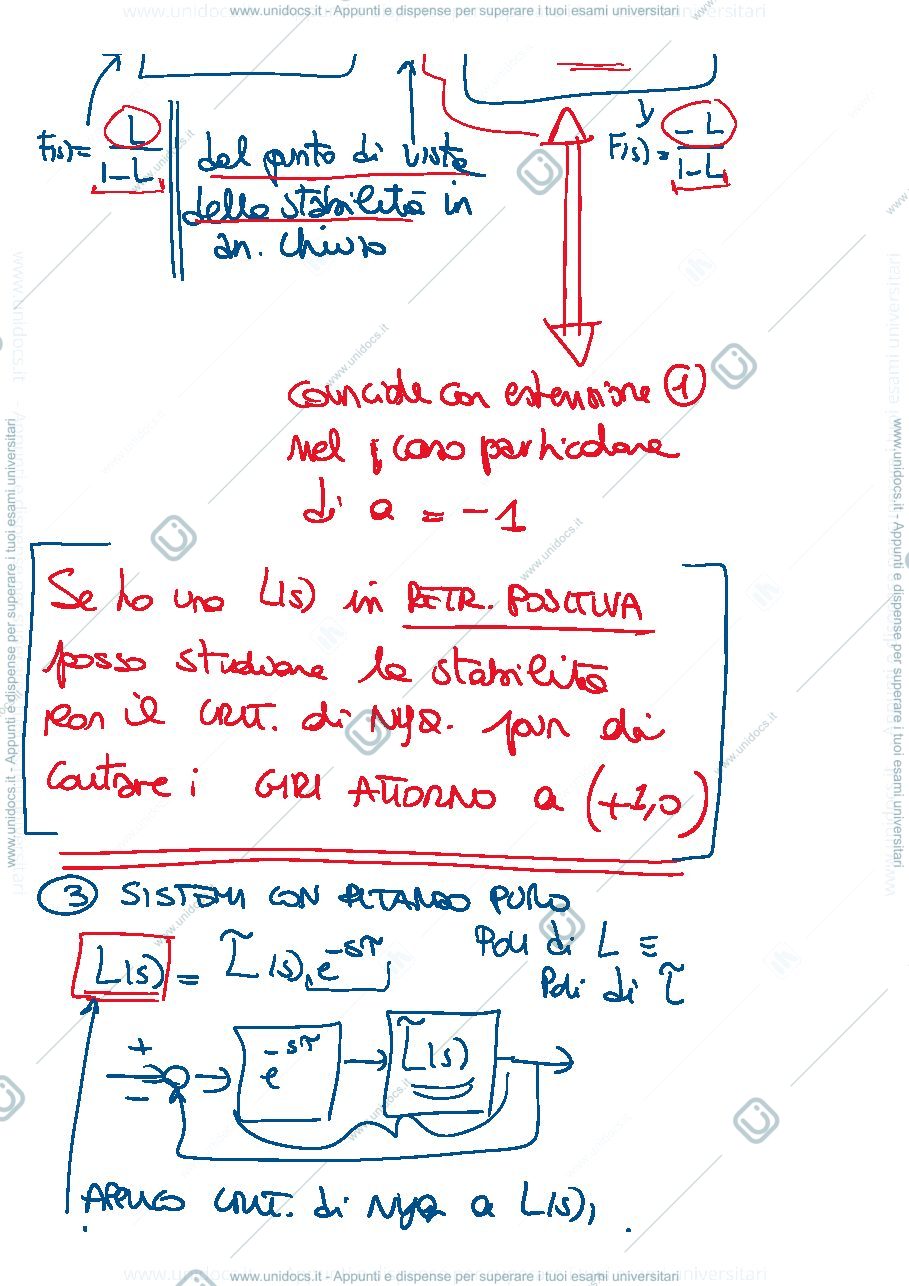 www.unidocs.it - Appunti e dispense per superare i tuoi esami universitari
F(s)= L / 1-L
dal punto di vista
della stabilità in
an. chiuso
y
F(s)= -L / 1-L
coincide con estensione ①
nel caso particolare
di a = -1
Se ho una L(s) in RETR. POSITIVA
posso studiare la stabilità
con il CRIT. di NYQ. pur di
contare i GIRI ATTORNO a (+1,0)
③ SISTEMI CON RITARDO PURO
L(s) = L̃(s).e^-sτ
Poli di L ≡
Poli di L̃
+
-
e^-sτ
L̃(s)
APPLICO CRIT. di Nyq a L(s),
www.unidocs.it - Appunti e dispense per superare i tuoi esami universitari